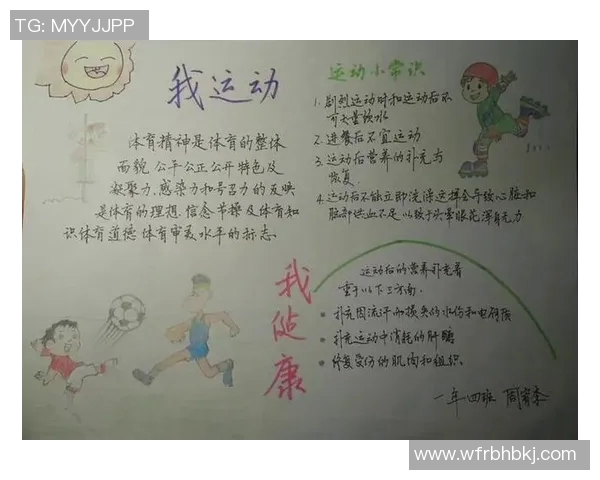 TG: MYYJJPP
我运动
体育精神是体育的整体
面貌,公平公正公开特色及
凝聚力,感染力和号召力的反映
是体育的理想,信念节操及体育知
识体育道德体育审美水平的标志.
运动小常识
1.剧烈运动时和运动后不
可大量饮水
2.进餐后不宜运动
3.运动后营养的补充与
恢复.
4.运动后不能立即洗澡这样会导致心脏和
脑部供血不足以致于头晕眼花浑身无力
我健康
运动后的营养补充着
重于以下三方面.
补充因流汗而损失的水份和电解质
补充运动中消耗的肝醣
修复受伤的肌肉和组织.
一年四班
www.wfrbhbkj.com